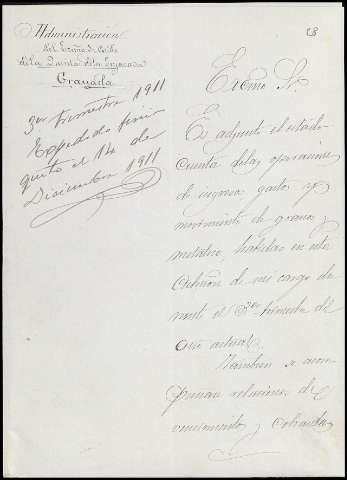 Administracion
del Excmo. Sr. Duque
de la
Granada
3er trimestre 1911
Expedido fini
quito el 14 de
Diciembre 1911
58
Excmo Sr.
Es adjunto el estado
cuenta de las operaciones
de ingresos, gastos y
movimiento de granos y
metalico, habidas en esta
de mi cargo du
rante el 3er trimestre del
año actual.
Tambien se acom
pañan relaciones de
vencimientos y cobrado